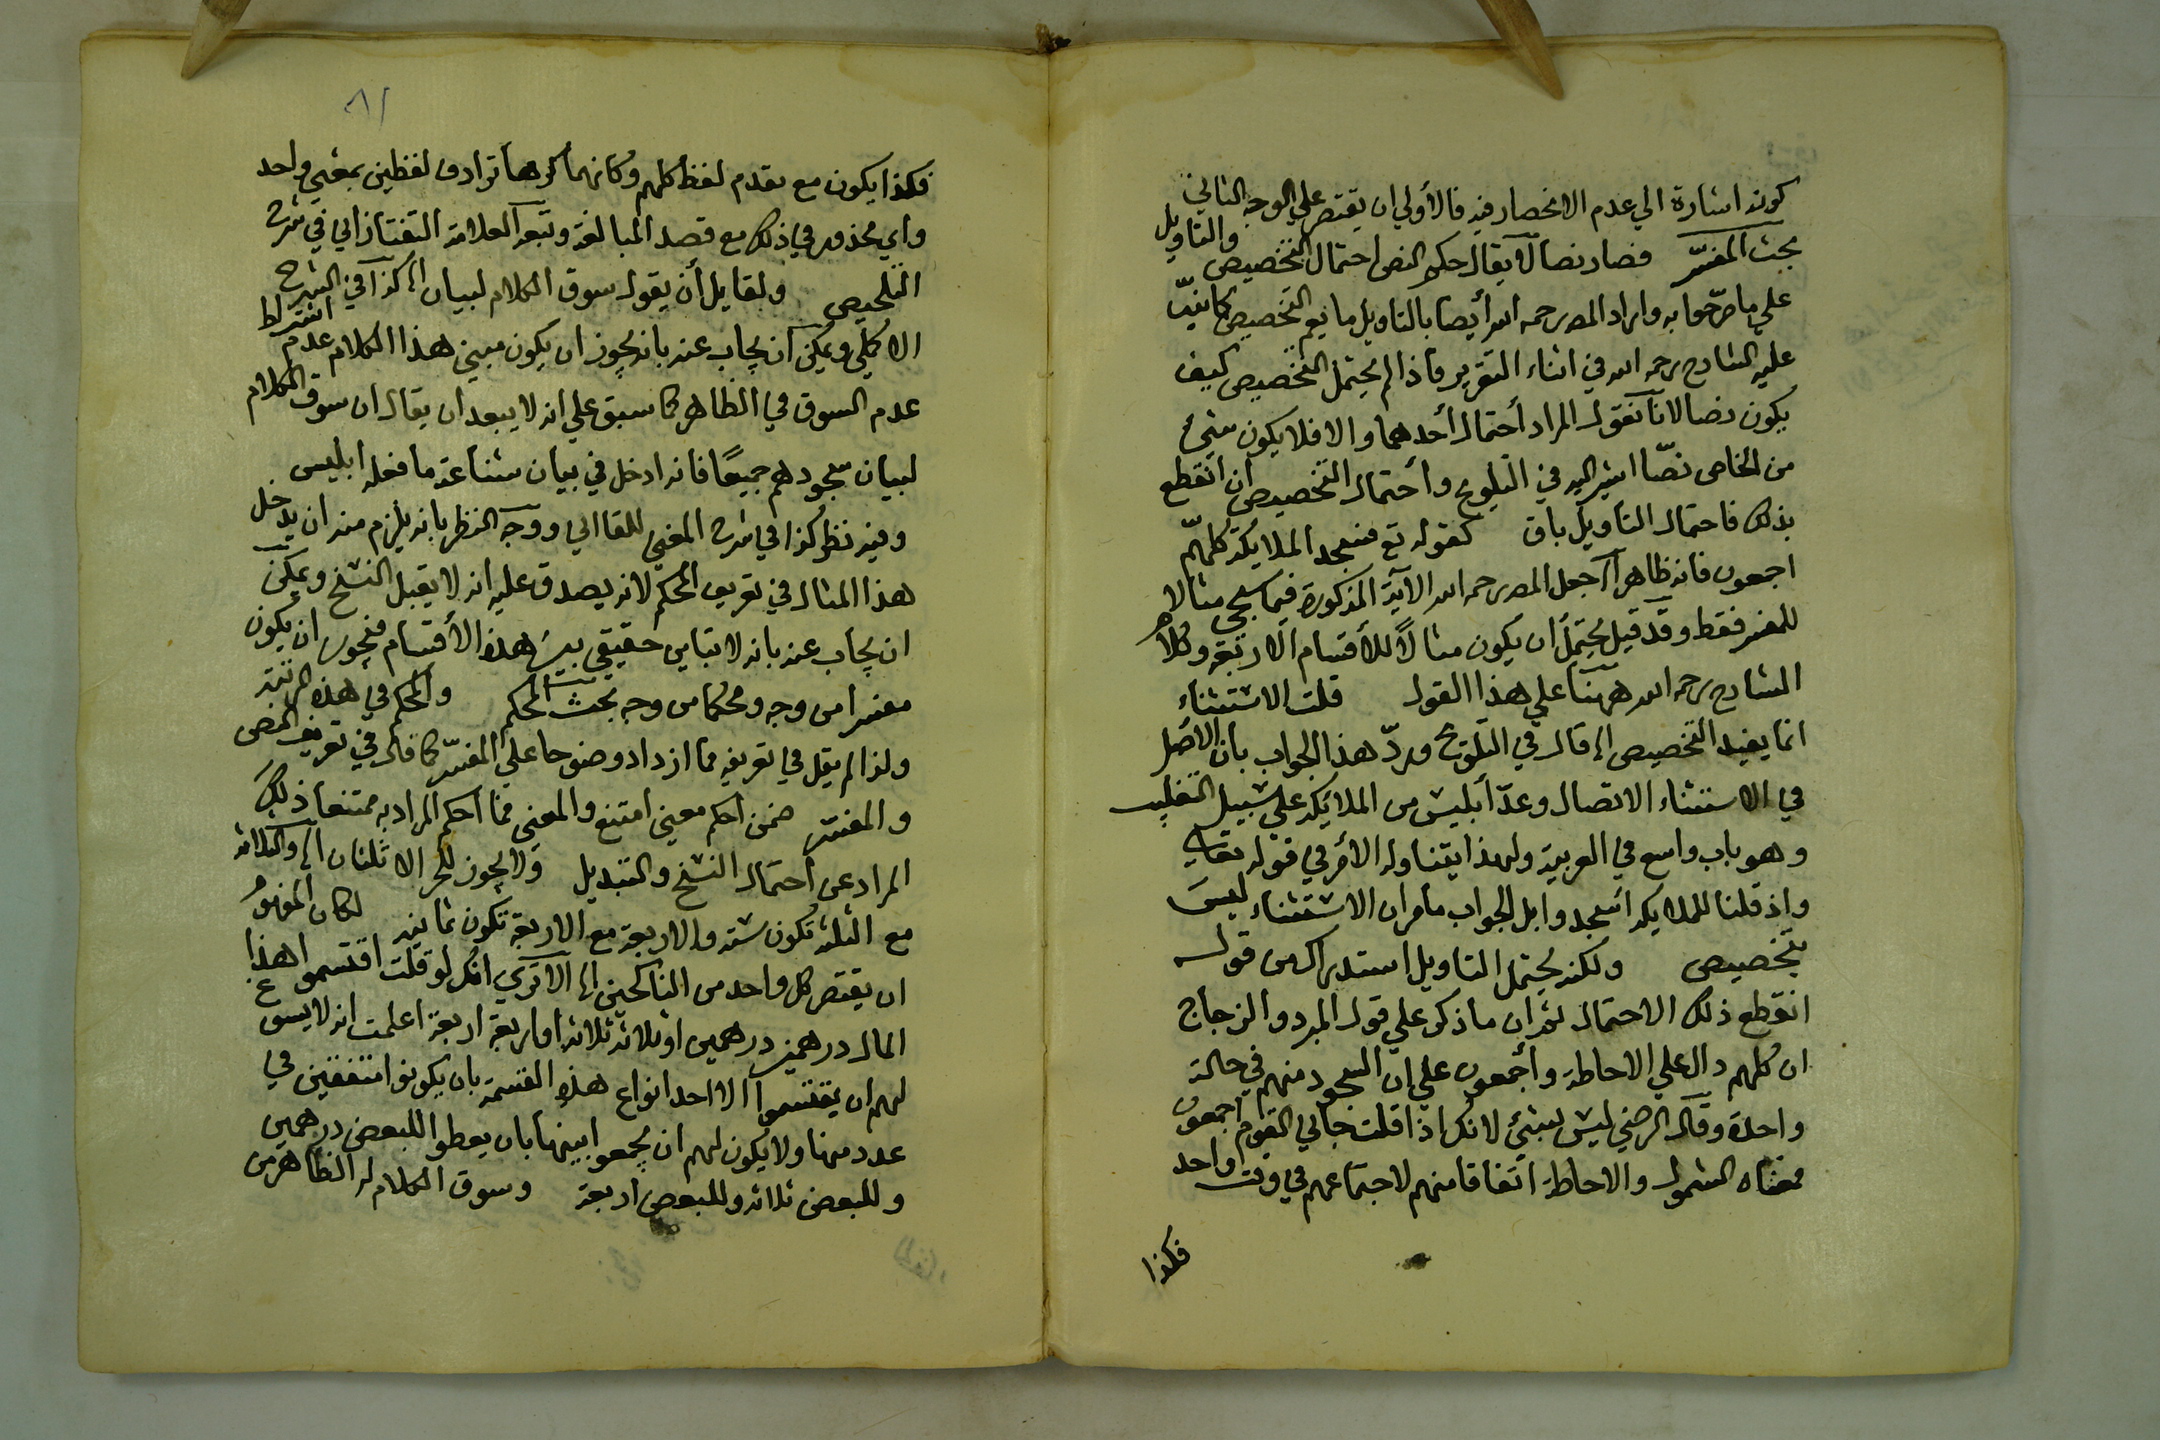 كونه اشارة الي عدم الانحصار فيه فالأولي ان يقتصر علي الوجه الثاني
بحث المفسّر فصار نصا لا يقال حكم النص احتمال التخصيص والتاويل
علي ما صرّحوا به واراد المص رحمه الله أيضا بالتاويل ما يعم التخصيص كما نبّه
عليه الشارح رحمه الله في اثناء التقرير فاذا لم يحتمل التخصيص كيف
يكون نصا لانا نقول المراد أحتمال أحدهما والا فلا يكون شيئ
من الخاص نصّا اشير اليه في التلويح وأحتمال التخصيص ان انقطع
بذلك فاحتمال التاويل باق كقوله تع فسجد الملايكة كلهم
اجمعون فانه ظاهر الخ جعل المص رحمه الله الآية المذكورة فيما سيجي مثالا
للمفسر فقط وقد قيل يحتمل ان يكون مثالاً للأقسام الاربعة وكلام
الشارح رحمه الله ههنا علي هذا القول قلت الاستثناء
انما يفيد التخصيص الخ قال في التلويح وردّ هذا الجواب بان الأصل
في الاستثناء الاتصال وعدّ أبليس من الملايكة علي سبيل التغليب
وهو باب واسع في العربية ولهذا يتناوله الأمر في قوله تعالي
واذ قلنا للملايكة اسجدوا بل الجواب ما مر ان الاستثناء ليس
بتخصيص ولكنه يحتمل التاويل استدراك من قوله
انقطع ذلك الاحتمال ثم ان ما ذكر علي قول المبرد والزجاج
ان كلهم دال علي الاحاطة وأجمعون علي ان السجود منهم في حالة
واحدة وقال الرضي ليس بشيئ لانك اذا قلت جاني القوم اجمعون
فمعناه الشمول والاحاطة اتفاقا منهم لا جتماعهم في وقت واحد
فكذا
٨١
فكذا يكون مع تقدم لفظ كلهم وكانهما كرها ترادف لفظين بمعني واحد
واي محذور في ذلك مع قصد المبالغة وتبعه العلامة التفتازاني في شرح
التلخيص ولقايل أن يقول سوق الكلام لبيان الخ كذا في الشرح
الاكملي ويمكن أن يجاب عنه بانه يجوز ان يكون مبني هذا الكلام عدم اشتراط
عدم السوق في الظاهر كما سبق علي انه لا يبعد ان يقال ان سوق الكلام
لبيان سجودهم جميعًا فانه ادخل في بيان شناعة ما فعله ابليس
وفيه نظر كذا في شرح المغني للقااني ووجه النظر بانه يلزم منه ان يدخل
هذا المثال في تعريف المحكم لانه يصدق عليه انه لا يقبل النسخ ويمكن
ان يجاب عنه بانه لا تباين حقيقي بين هذه الأقسام فيجوز ان يكون
مفسرا من وجه ومحكما من وجه بحث المحكم والمحكم في هذه المرتبة
ولذا لم يقل في تعريفه مما ازداد وضوحا علي المفسّر كما قال في تعريف النص
والمفسر ضمن احكم معني امتنع والمعني مما احكم المراد به ممتنعا ذلك
المراد عن أحتمال النسخ والتبديل ولا يجوز للحر الا ثلثان الخ والثلاثة
مع الثلثة تكون ستة والاربعة مع الاربعة تكون ثمانية لكان المفهوم
ان يقتصر كل واحد من الناكحين الخ الا تري انك لو قلت اقتسموا هذا
المال درهمين درهمين او ثلاثة ثلاثة او اربعة اربعة اعلمت انه لا يسوغ
لهم ان يقتسموا الا احد انواع هذه القسمة بان يكونوا متفقين في
عدد منها ولا يكون لهم ان يجمعوا بينها بان يعطوا للبعض درهمين
وللبعض ثلاثة وللبعض اربعة وسوق الكلام له الظاهر من